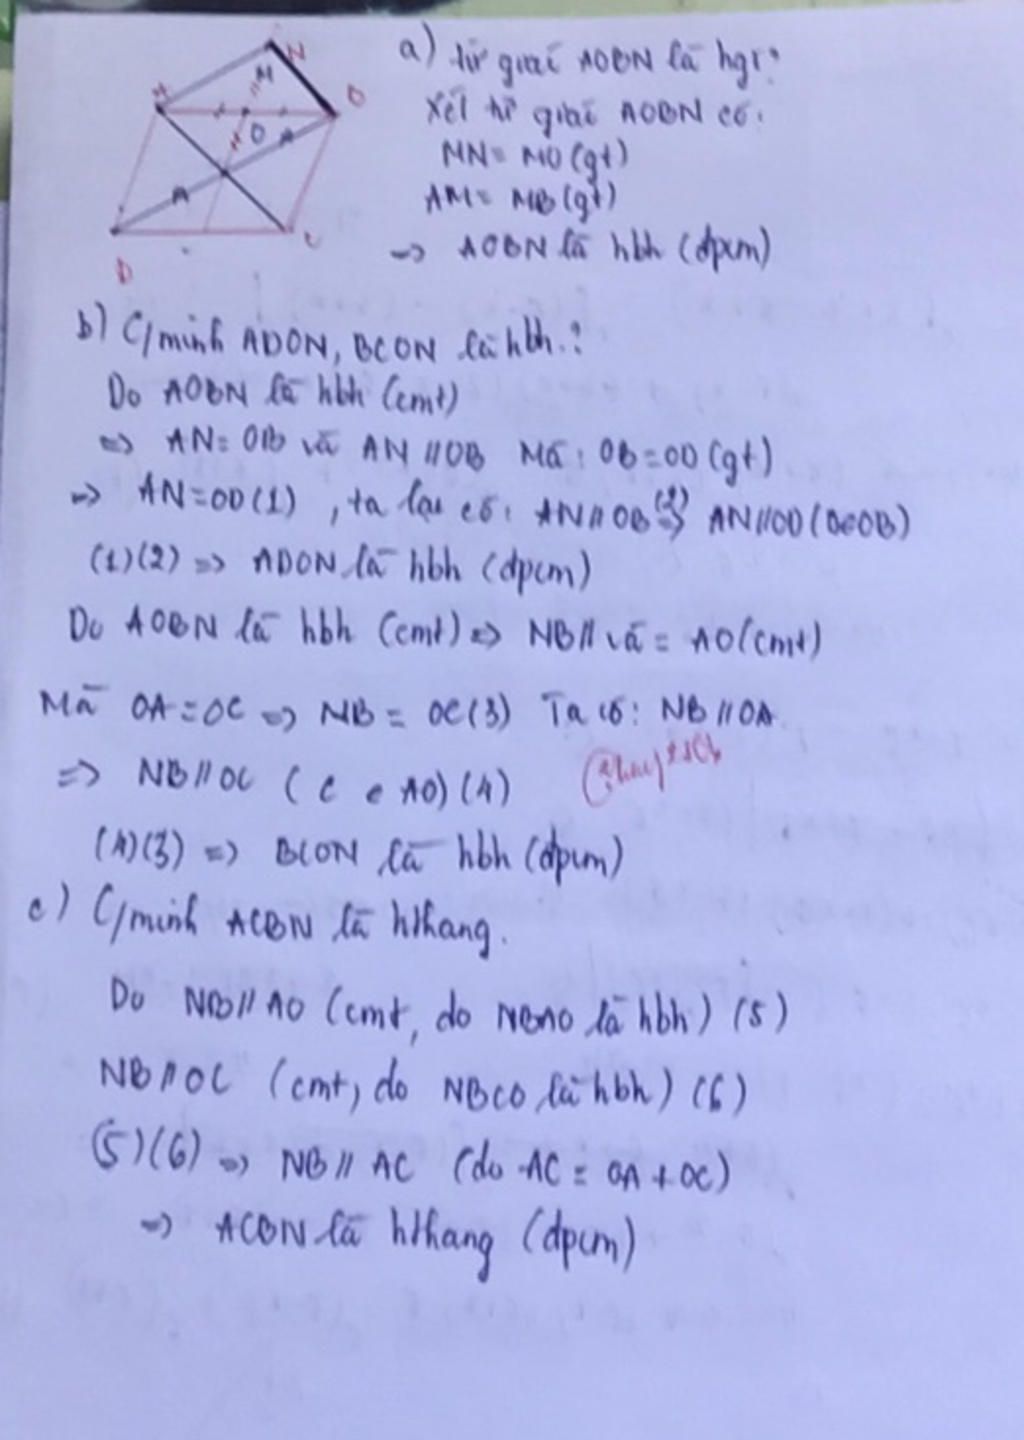 A
N
M
B
O
D
C
a) tứ giác AOBN là hgi?
Xét tứ giác AOBN có:
MN = MO (gt)
AM = MB (gt)
=> AOBN là hbh (đpcm)
b) C/minh ADON, BCON là hbh.?
Do AOBN là hbh (cmt)
=> AN = OB và AN // OB Mà: OB = OD (gt)
=> AN = OD (1) , ta lại có: AN // OB (2) => AN // OD (O∈OB)
(1)(2) => ADON là hbh (đpcm)
Do AOBN là hbh (cmt) => NB // và = AO (cmt)
Mà OA = OC => NB = OC (3) Ta có: NB // OA
=> NB // OC ( C ∈ AO) (4)
(4)(3) => BCON là hbh (đpcm)
c) C/minh ACBN là hthang.
Do NB // AO (cmt, do NBAO là hbh) (5)
NB // OC (cmt, do NBCO là hbh) (6)
(5)(6) => NB // AC (do AC = OA + OC)
=> ACBN là hthang (đpcm)